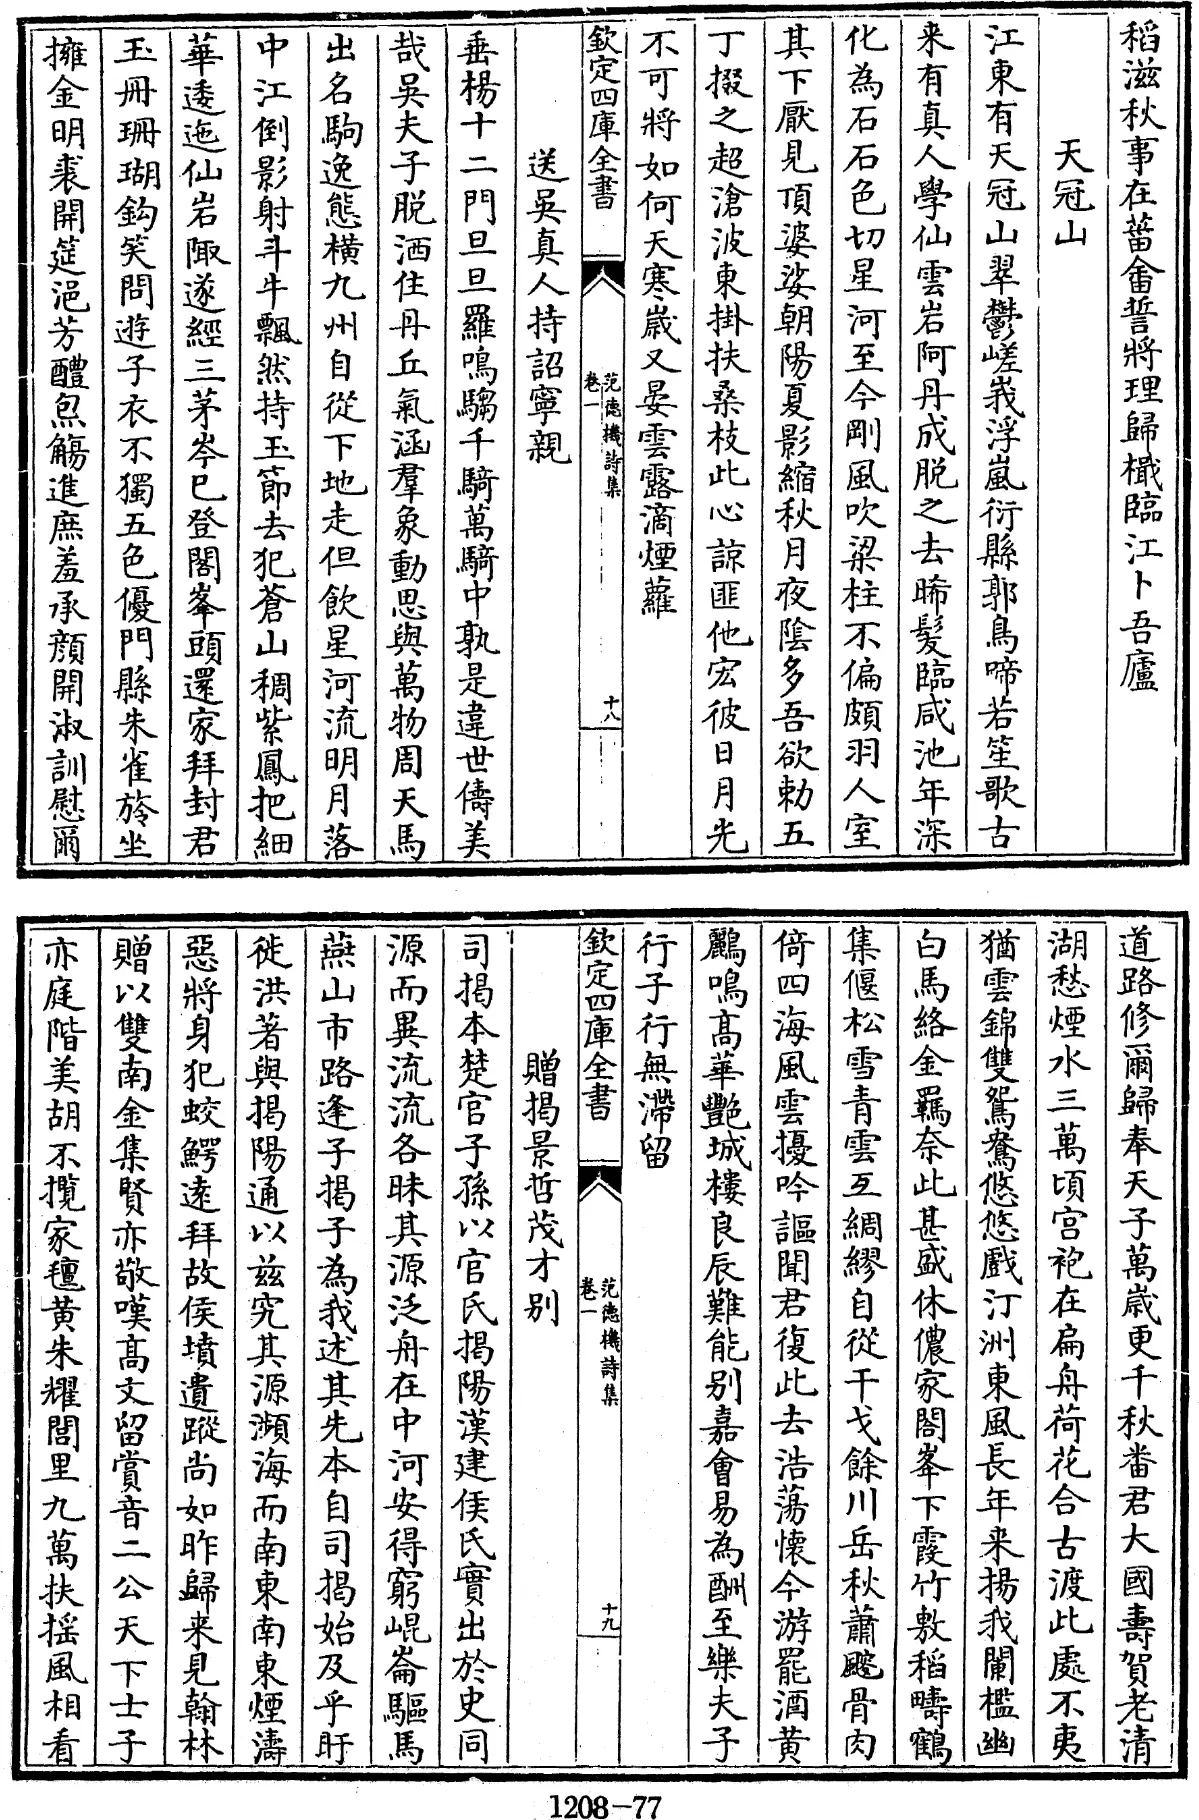 稻滋秋事在菑畬誓將理歸檝臨江卜吾廬
天冠山
江東有天冠山翠鬱嵯峩浮嵐衍縣郭鳥啼若笙歌古
来有真人學仙雲岩阿丹成脱之去晞髮臨咸池年深
化為石石色切星河至今剛風吹梁柱不偏頗羽人室
其下厭見頂婆娑朝陽夏影縮秋月夜陰多吾欲勅五
丁掇之超滄波東掛扶桑枝此心諒匪他宏彼日月光
不可將如何天寒歲又晏雲露滴煙蘿
欽定四庫全書
范德機詩集
卷一
十八
送吳真人持詔寧親
垂楊十二門旦旦羅鳴騶千騎萬騎中孰是違世儔美
哉吳夫子脱洒住丹丘氣涵羣象動思與萬物周天馬
出名駒逸態横九州自從下地走但飲星河流明月落
中江倒影射斗牛飄然持玉節去犯蒼山稠紫鳳把細
華逶迤仙岩陬遂經三茅岑已登閣峯頭還家拜封君
玉冊珊瑚鈎笑問遊子衣不獨五色優門縣朱雀旍坐
擁金明裘開筵浥芳醴炰觴進庶羞承顔開淑訓慰爾
道路修爾歸奉天子萬歲更千秋畨君大國壽賀老清
湖愁煙水三萬頃宫袍在扁舟荷花合古渡此處不夷
猶雲錦雙鴛鴦悠悠戲汀洲東風長年来揚我闌檻幽
白馬絡金羈奈此甚盛休儂家閣峯下霞竹敷稻疇鶴
集偃松雪青雲互綢繆自從干戈餘川岳秋蕭颼骨肉
倚四海風雲擾吟謳聞君復此去浩蕩懷今游罷酒黄
鸝鳴高華艷城樓良辰難能别嘉會易為酬至樂夫子
行子行無滯留
欽定四庫全書
范德機詩集
卷一
十九
贈揭景哲茂才别
司揭本楚官子孫以官氏揭陽漢建侯氏實出於史同
源而異流流各昧其源泛舟在中河安得窮崐崙驅馬
燕山市路逢子揭子為我述其先本自司揭始及乎旴
徙洪著與揭陽通以兹究其源瀕海而南東南東煙濤
惡將身犯蛟鰐遠拜故侯墳遺蹤尚如昨歸来見翰林
贈以雙南金集賢亦敬嘆高文留賞音二公天下士子
亦庭階美胡不攬家氊黄朱耀閭里九萬扶揺風相看
1208-77